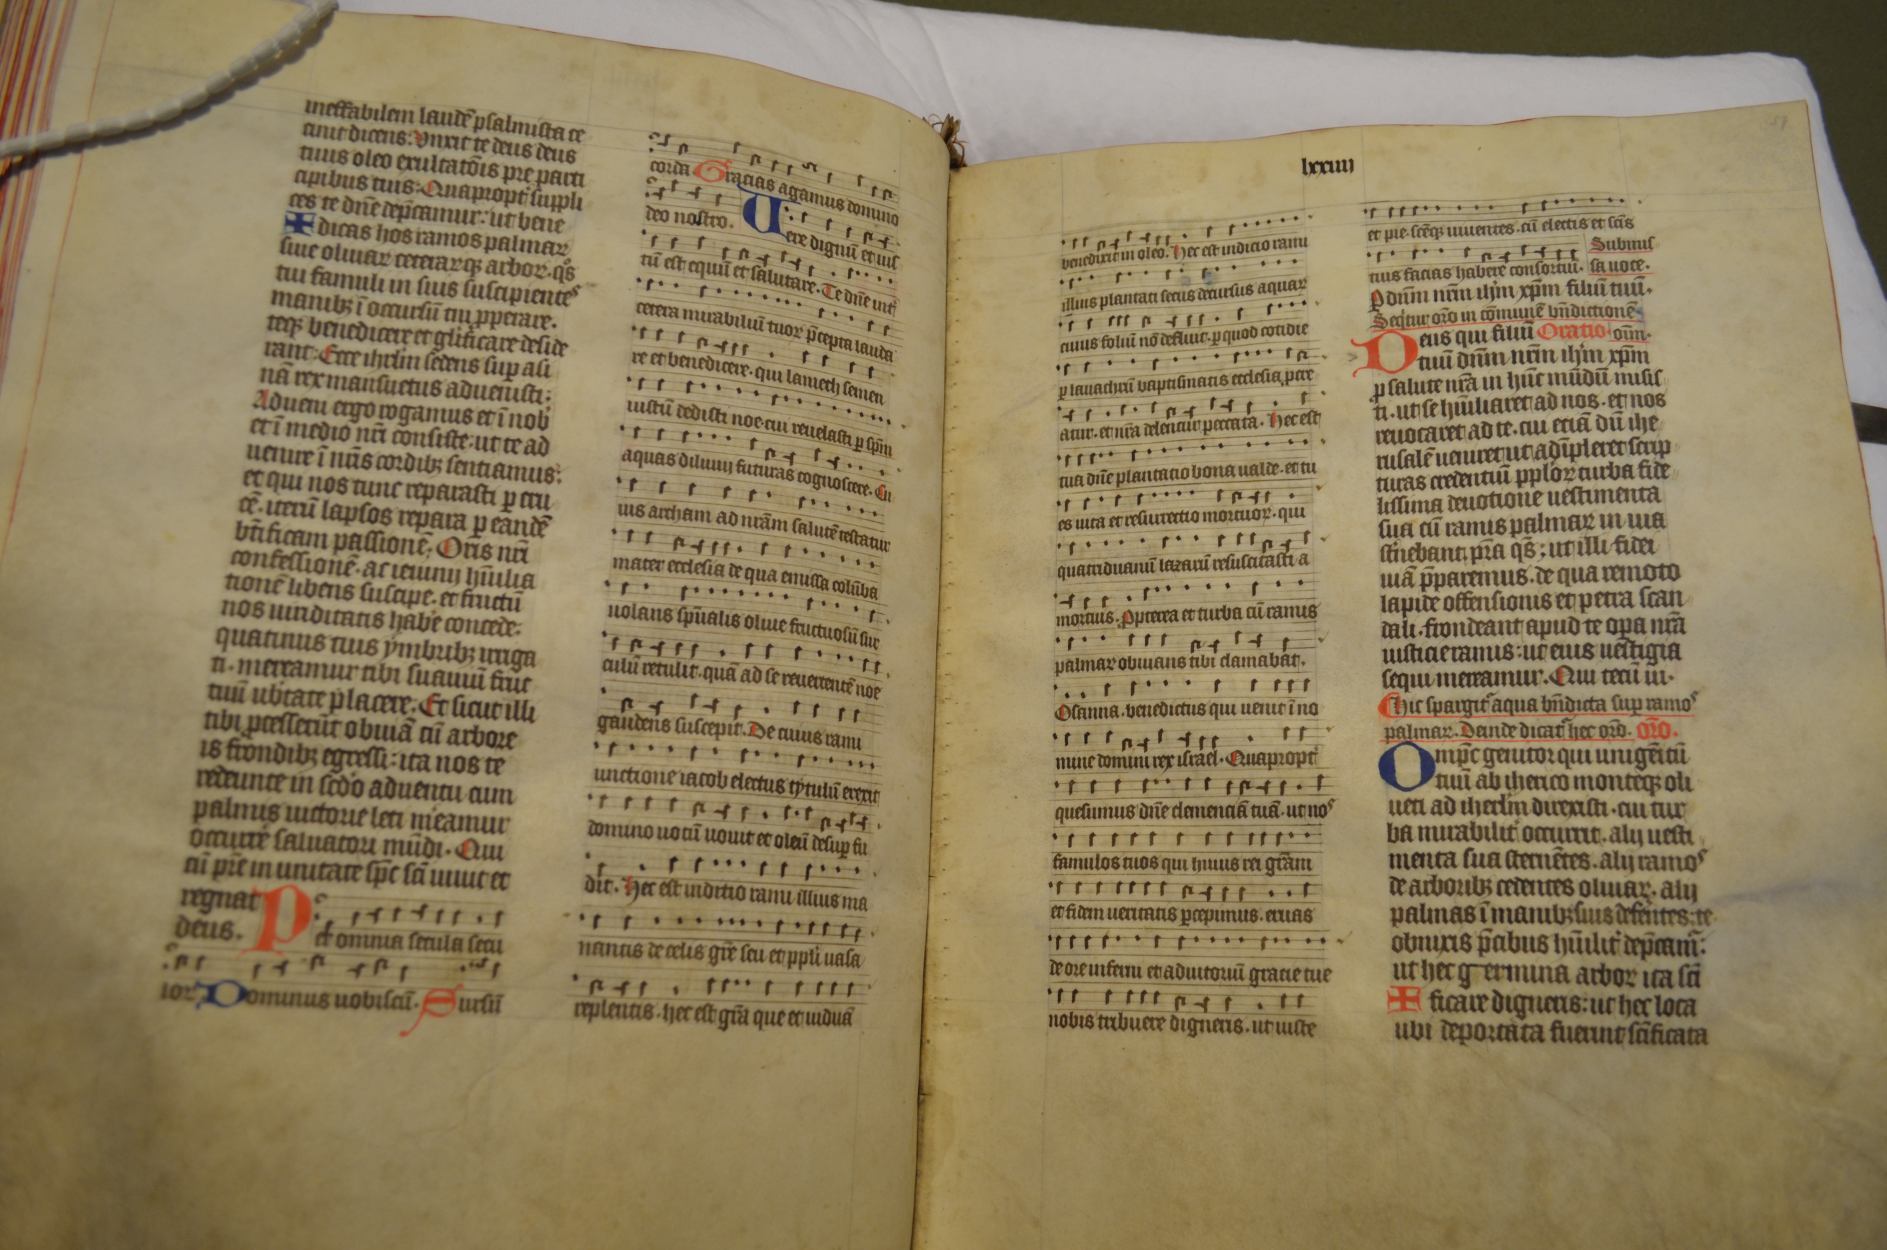 ineffabilem laudē psalmista ce
cinit dicens: Vnxit te deus deus
tuus oleo exultatōis pre parti
cipibus tuis: Quapropt suppli
ces te dn̄e dep̄camur: ut bene
✠ dicas hos ramos palmaꝝ
siue oliuaꝝ ceteraꝝqꝫ arboꝝ. qͦs
tui famuli in suis suscipientes
manibꝫ ī occursū tui ꝓperare.
teqꝫ benedicere et glificare deside
rant: Ecce ihrlm sedens suꝑ asi
nā rex mansuetus aduenisti:
Adueni ergo rogamus et ī nob
et ī medio nr̄i consiste: ut te ad
uenire ī nr̄is cordibꝫ sentiamus:
et qui nos tunc reparasti ꝑ cru
cē. iterū lapsos repara ꝑ eandē
bn̄ficam passionē. Oris nr̄i
confessionē. ac ieiunij hūilia
tionē libens suscipe. et fructū
nos uiriditatis habe concede:
quatinus tuis ymbribꝫ irriga
ti. mereamur tibi suauiū fruc
tuū ub̄tate placere. Et sicut illi
tibi ꝓcesserūt obuiā cū arbore
is frondibꝫ egressi: ita nos te
redeunte in sc̄do aduentu cum
palmis uictorie leti meamur
occurrē saluatori mūdi. Qui
cū pr̄e in unitate sp̄c sc̄i uiuit et
regnat
deus. Per omnia secula secu
loꝝ Dominus uobiscū. Sursū
corda Gracias agamus domino
deo nostro. Uere dignū et ius
tū est equū et salutare. Te dn̄e int
cetera mirabiliū tuoꝝ p̄cepta lauda
re et benedicere. qui lamech semen
iustū dedisti noe. cui reuelasti ꝑ sp̄m
aquas diluuij futuras cognoscere. Cu
ius archam ad nr̄am salutē testatur
mater ecclesia de qua emissa colūba
uolans sp̄ualis oliue fructuosū sur
culū retulit. quā ad se reuertentē noe
gaudens suscepit. De cuius rami
unctione iacob electus tytulū erexit
domino uotū uouit et oleū desuꝑ fu
dit. Hec est indicio rami illius ma
nantis de celis gr̄e seu et ppl̄i uasa
replentis. hec est gr̄a que et uiduā
lxxiiii
benedixit in oleo. Hec est indicio rami
illius plantati secus decursus aquaꝝ
cuius foliū nō defluit. ꝑ quod cotidie
ꝑ lauachrū baptismatis ecclesia ꝑcre
atur. et nr̄a delentur peccata. Hec est
tua dn̄e plantatio bona ualde. et tu
es uita et resurrectio mortuoꝝ. qui
quatriduanū lazarū resuscitasti a
mortuis. Ꝓpterea et turba cū ramis
palmaꝝ obuians tibi clamabat.
Osanna. benedictus qui uenit ī no
mine domini rex israel. Quapropt
quesumus dn̄e clemenciā tuā. ut nos
famulos tuos qui huius rei gr̄am
et fidem ueritatis ꝑcepimus. eruas
de ore inferni et adiutoriū gracie tue
nobis tribuere digneris. ut iuste
et pie. sc̄eqꝫ uiuentes. cū electis et sc̄is
Submis
tuis facias habere consortiū. sa uoce.
P dn̄m nr̄m ihm̄ xp̄m filiū tuū.
Seqtur orō in cōmunē bn̄dictionē
Deus qui filiū Oratio. om̄.
tuū dn̄m nr̄m ihm̄ xp̄m
ꝑ salute nr̄a in hūc mūdū misis
ti. ut se hūiliaret ad nos. et nos
reuocaret ad te. cui etiā dū ihe
rusalē ueniret ut adīpleret scrip
turas credentiū pplōꝝ turba fide
lissima deuotione uestimenta
sua cū ramis palmaꝝ in uia
st̄nebant. pr̄a qͦs; ut illi fidei
uiā p̄paremus. de qua remoto
lapide offensionis et petra scan
dali. frondeant apud te oꝑa nr̄a
iusticie ramis: ut eius uestigia
sequi mereamur. Qui tecū ui.
Hic spargit aqua bn̄dicta suꝑ ramos
palmaꝝ. Deinde dicat hec orō. Orō.
Omp̄c genitor qui unigēitū
tuū ab iherico monteqꝫ oli
ueti ad iherlm direxisti. cui tur
ba mirabilit occurrit. alij uesti
menta sua sternētes. alij ramos
de arboribꝫ cedentes oliuaꝝ. alij
palmas ī manibꝫ suis deferētes: te
obnixis p̄cibus hūilit dep̄cam̄:
ut hec germina arboꝝ ita sc̄i
✠ ficare digneris: ut hec loca
ubi deportata fuerint sc̄ificata